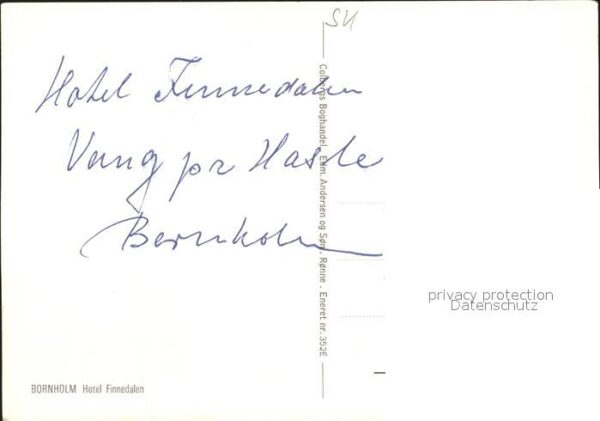 SU
Hotel Finnedalen
Vang pr Hasle
Bornholm
Colbergs Boghandel . Edm. Andersen og Søn. Rønne . Eneret nr. 352E
privacy protection
Datenschutz
BORNHOLM Hotel Finnedalen